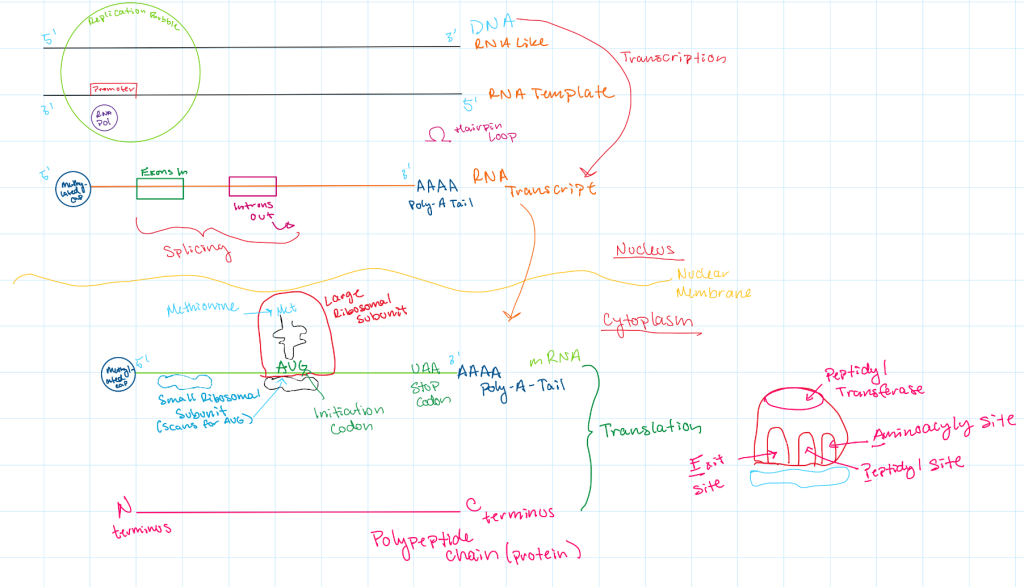 Replication Bubble
DNA
5'
3'
RNA Like
Transcription
Promoter
3'
5'
RNA Template
RNA
Pol
Hairpin
Loop
5'
Exons In
3'
RNA
Methy-
lated
cap
AAAA
Transcript
Poly-A Tail
Introns
out
Splicing
Nucleus
Nuclear
Membrane
Methionine
Met
Large
Ribosomal
Subunit
Cytoplasm
5'
3'
mRNA
Methyl-
lated
cap
AUG
UAA
AAAA
Stop
Codon
Poly-A-Tail
Small Ribosomal
Subunit
(scans for AUG)
Initiation
Codon
Translation
Peptidyl
Transferase
Aminoacyly Site
Exit
Site
Peptidyl Site
N
terminus
C
terminus
Polypeptide
chain (protein)